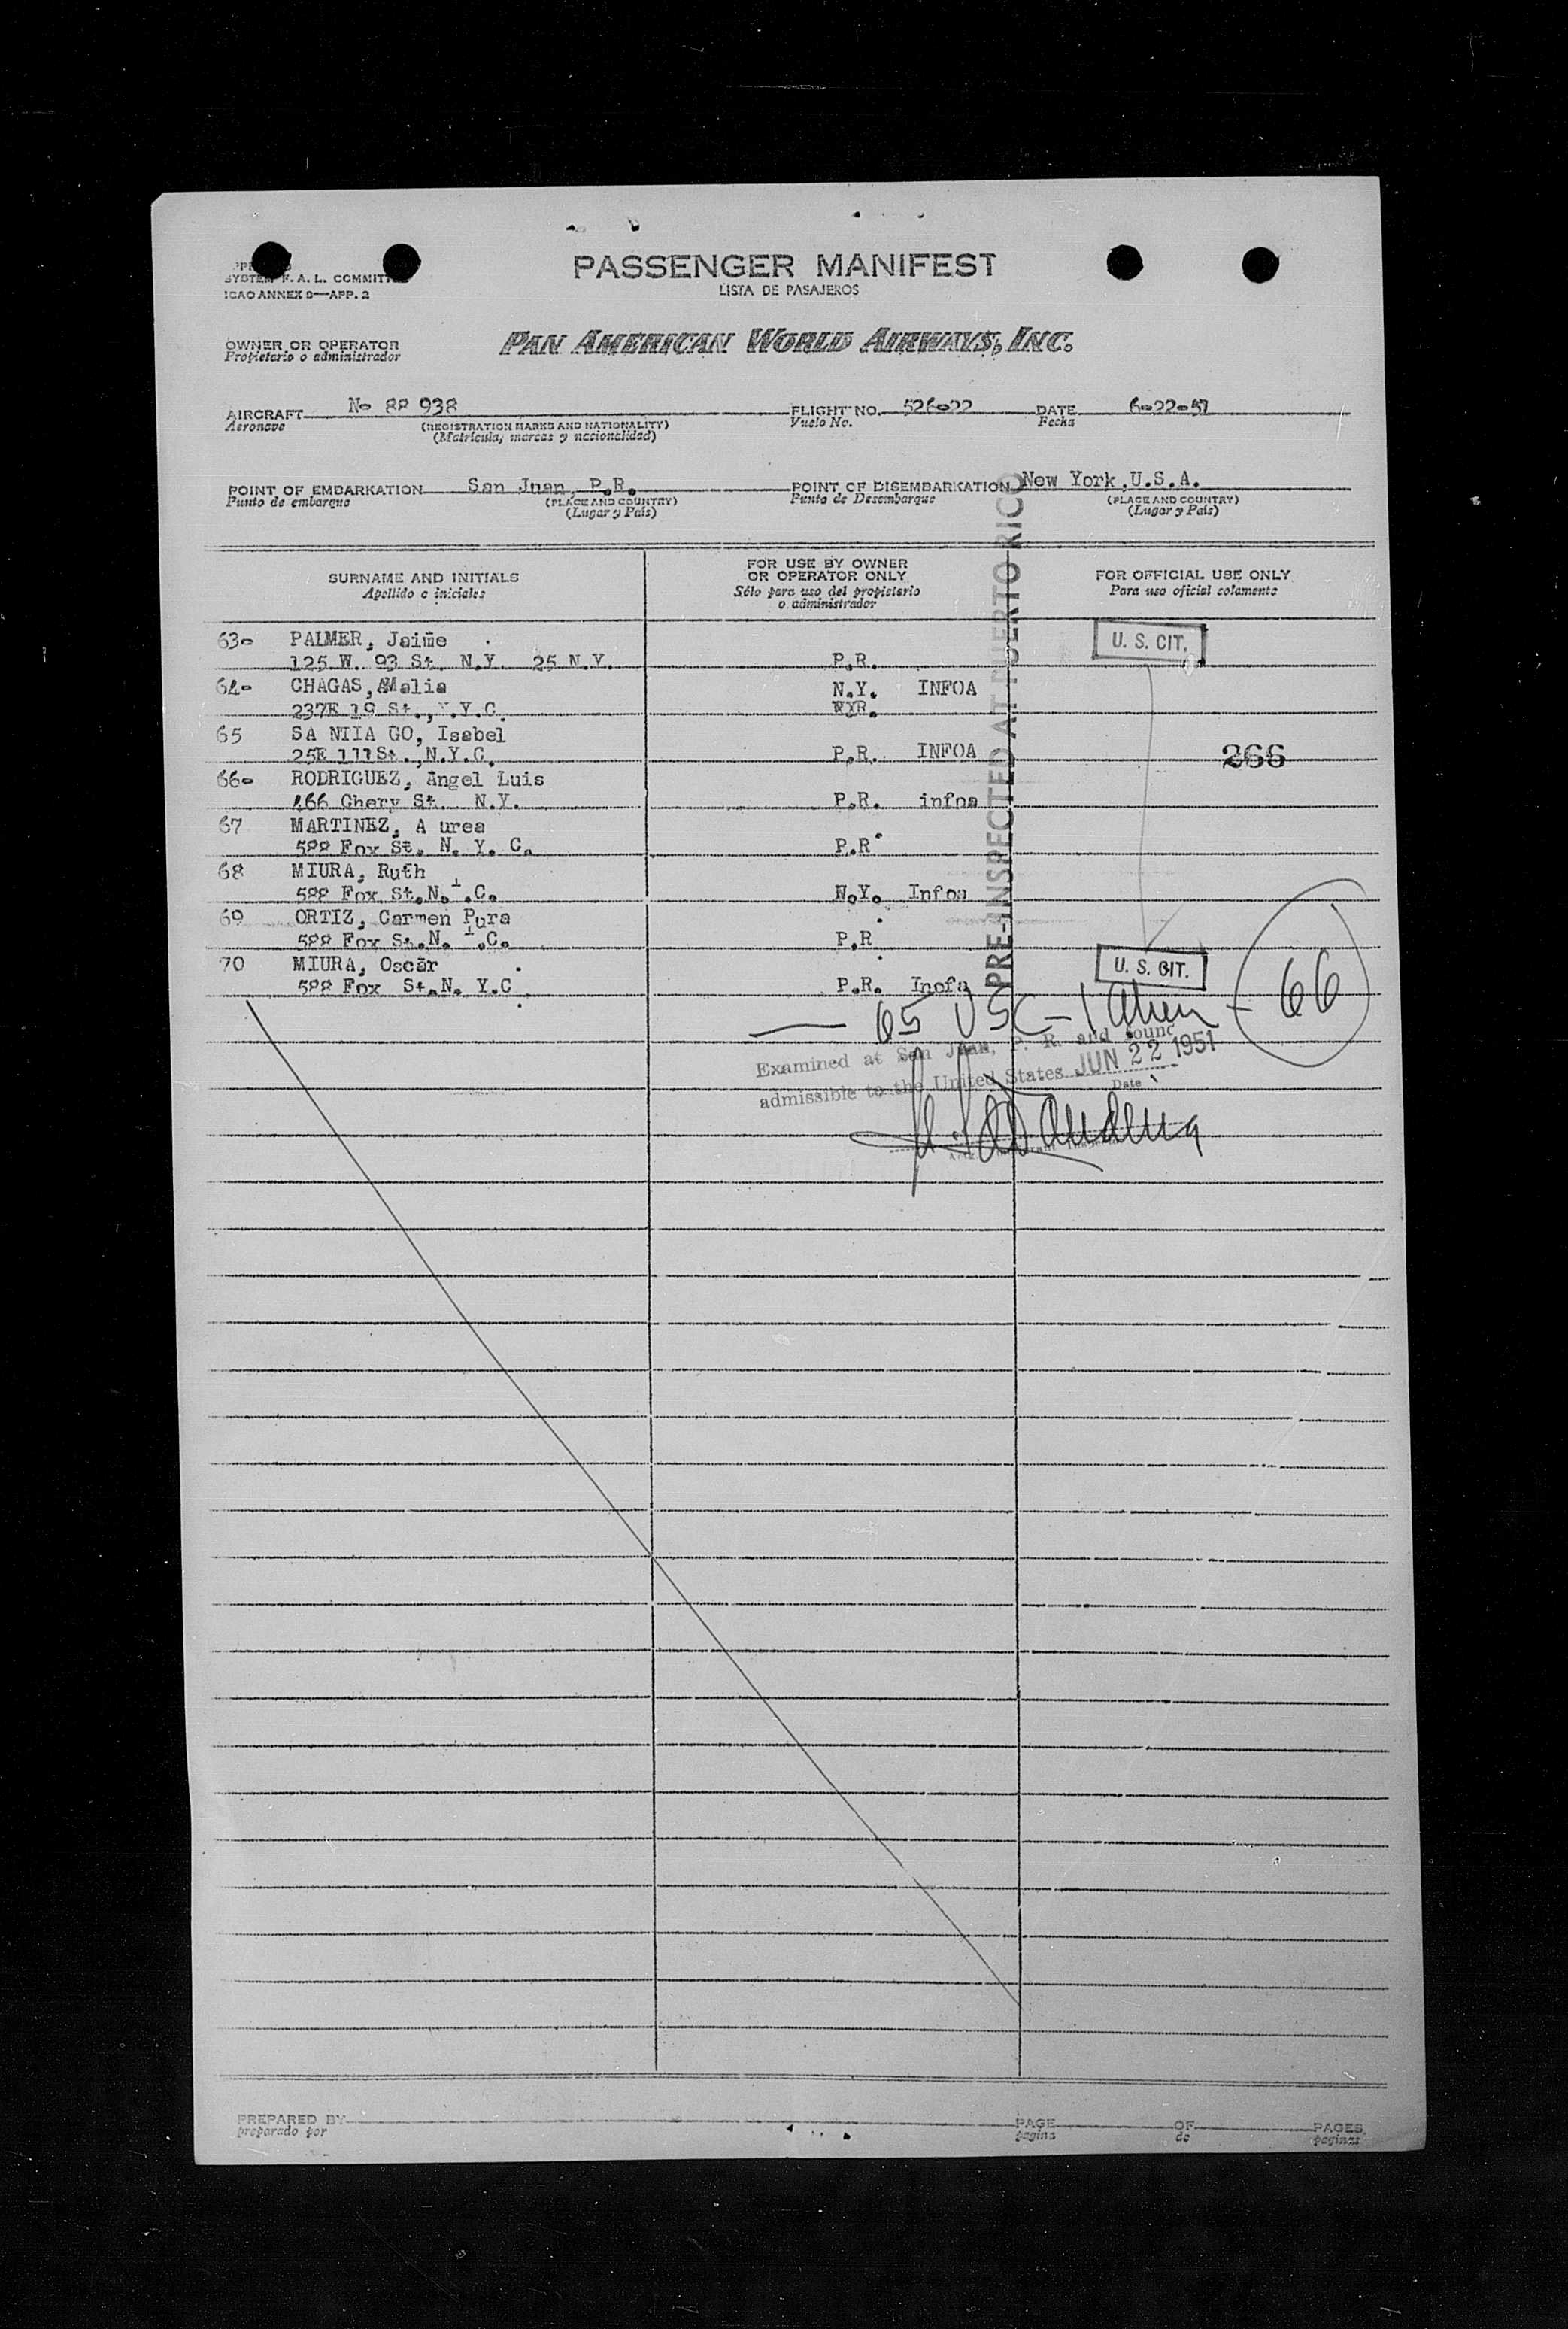 SYSTEM F. A. L. COMMITTEE
ICAO ANNEX 9—APP. 2
PASSENGER MANIFEST
LISTA DE PASAJEROS
OWNER OR OPERATOR
Propietario o administrador
PAN AMERICAN WORLD AIRWAYS, INC.
AIRCRAFT N- 88 938 FLIGHT NO. 526-22 DATE 6-22-51
Aeronave (REGISTRATION MARKS AND NATIONALITY) Vuelo No. Fecha
(Matricula, marcas y nacionalidad)
POINT OF EMBARKATION San Juan, P.R. POINT OF DISEMBARKATION New York, U.S.A.
Punto de embarque (PLACE AND COUNTRY) Punto de Desembarque (PLACE AND COUNTRY)
(Lugar y País) (Lugar y País)
SURNAME AND INITIALS
Apellido e iniciales
FOR USE BY OWNER
OR OPERATOR ONLY
Sólo para uso del propietario
o administrador
FOR OFFICIAL USE ONLY
Para uso oficial solamente
PRE-INSPECTED AT PUERTO RICO
63- PALMER, Jaime U. S. CIT.
125 W. 93 St. N.Y. 25 N.Y. P.R.
64- CHAGAS, AMalia N.Y. INFOA
237E 19 St., N.Y.C.
65 SA NTIA GO, Isabel
25E 111St., N.Y.C. P.R. INFOA 266
66- RODRIGUEZ, Angel Luis
466 Chery St. N.Y. P.R. infoa
67 MARTINEZ, A urea
588 Fox St. N. Y. C. P.R
68 MIURA, Ruth
588 Fox St.N.Y.C. N.Y. Infoa
69 ORTIZ, Carmen Pura
588 Fox St.N. Y.C. P.R
70 MIURA, Oscar U. S. CIT.
588 Fox St.N. Y.C. P.R. Inofa
— 65 USC - 1 Alien - 66
Examined at San Juan, P. R. and found
admissible to the United States JUN 22 1951
Date
PREPARED BY PAGE OF PAGES
preparado por pagina de paginas